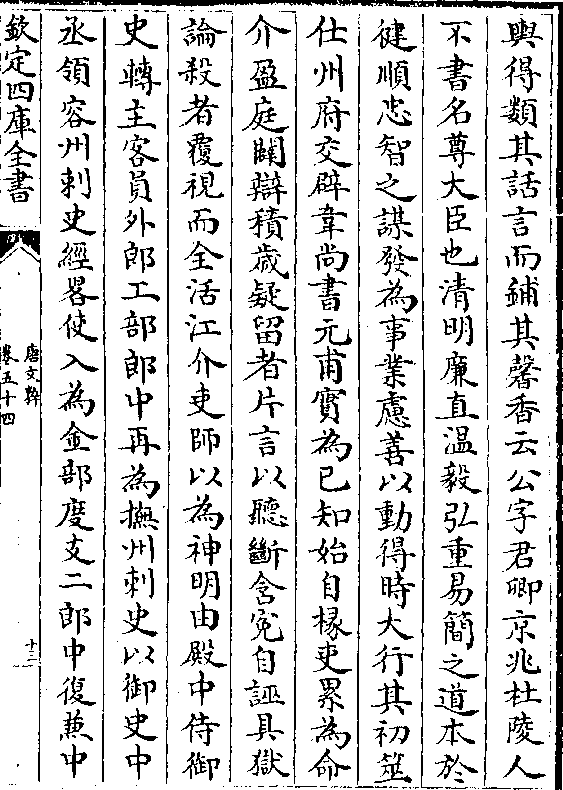 輿得類其話言而鋪其馨香云公字君卿京兆杜陵人
不書名尊大臣也清明廉直温毅弘重易簡之道本於
健順忠智之謀發為事業慮善以動得時大行其初筮
仕州府交辟韋尚書元甫實為已知始自椽吏累為命
介盈庭鬭辯積歲疑留者片言以聽斷含寃自誣具獄
論殺者覆視而全活江介吏師以為神明由殿中侍御
史轉主客員外郎工部郎中再為撫州刺史以御史中
丞領容州刺史經畧使入為金部度支二郎中復兼中
欽定四庫全書
唐文粹
卷五十四
十二